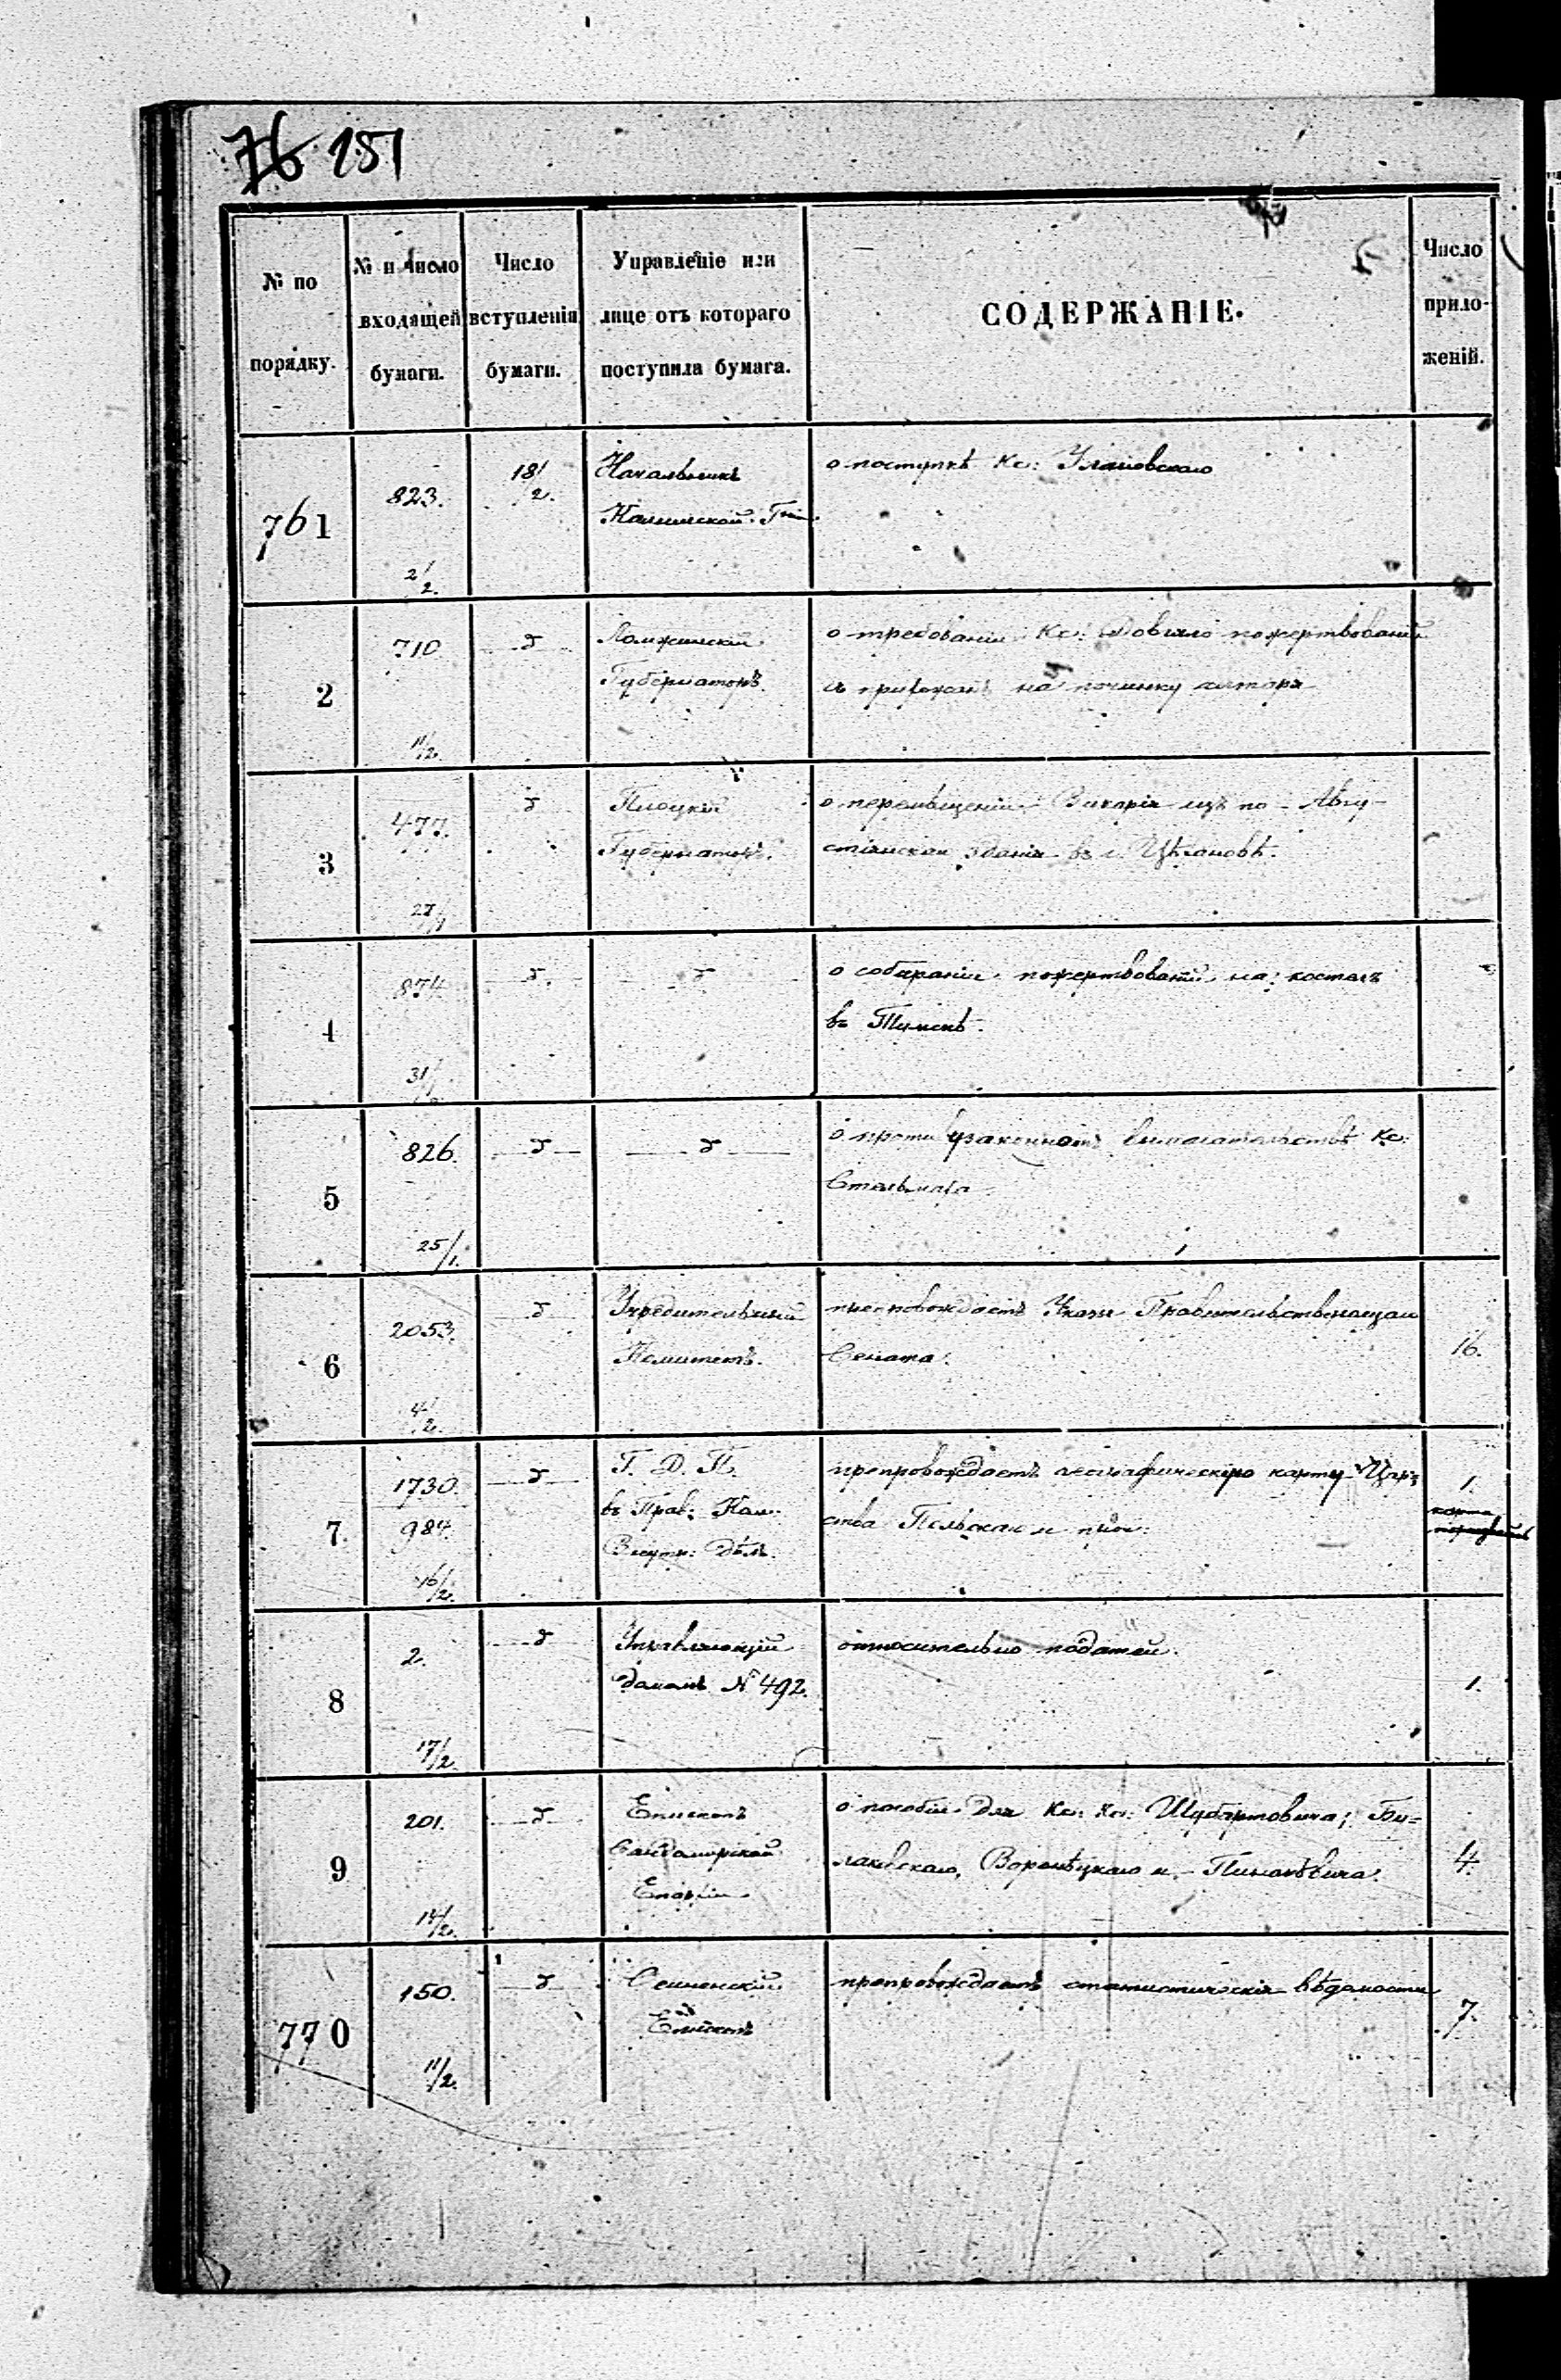 76 151
№ по порядку.
№ и число входящей бумаги.
Число вступленія бумаги.
Управленіе или лице отъ котораго поступила бумага.
СОДЕРЖАНІЕ.
Число приложеній.
761
823.
2/2.
18/2.
Начальникъ
Калишской Губ.
о поступкѣ Кс:
2
710
11/2.
Ломжинскій
Губернаторъ.
о требованіи Кс: пожертвованій
съ прихожанъ на починку
3
477.
27/1
Плоцкій
Губернаторъ.
о перемѣщеніи Викарія изъ по-Авгу-
стіанскаго зданія въ г. Цѣхановѣ.
4
874
31/1
о собираніи пожертвованій на костелъ
въ
5
826.
25/1.
о противузаконномъ вымогательствѣ Кс:
6
2053.
4/2.
Учредительный
Комитетъ.
препровождаетъ Указы Правительствующаго
Сената.
16.
7
1730.
984.
16/2.
Г. Д. П.
въ Прав: Ком:
Внутр: Дѣлъ.
препровождаетъ географическую карту Цар-
ства Польскаго и проч:
1.
карта
8
2.
17/2.
Управляющій
домомъ № 492.
относительно податей.
1.
9
201.
14/2.
Епископъ
Сандомирской
Епархіи
о пособіи для Кс: Кс: Шубартовича,
Воронецкаго и
4.
770
150.
11/2.
Сейненскій
Епископъ
препровождаетъ статистическія вѣдомости
7.